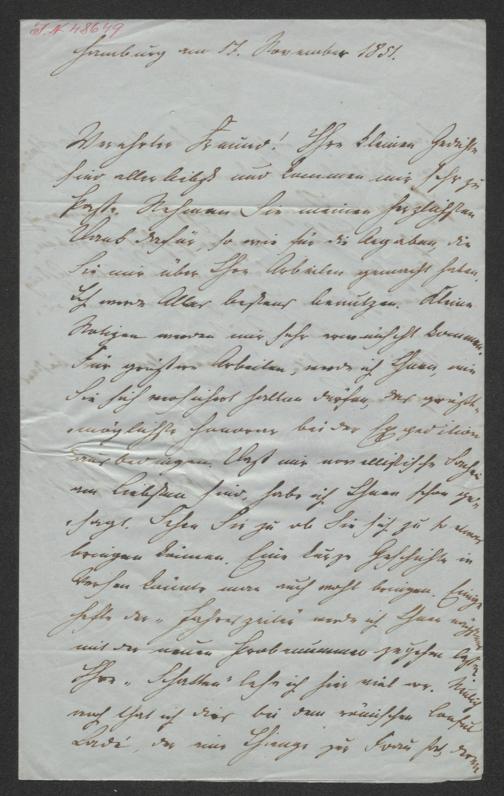 I.N 48649
Hamburg am 17. November 1851.
Verehrter Freund! Ihre kleinen Gedichte
sind allerliebst und kommen mir sehr zu
paß. Nehmen Sie meinen herzlichsten
Dank dafür, so wie für die Angaben, die
Sie mir über Ihre Arbeiten gemacht haben.
Ich werde Alles bestens benutzen. Kleine
Notizen werden mir sehr erwünscht kommen.
Für größere Arbeiten, werde ich Ihnen, wie
Sie sich versichert halten dürfen, das größt-
möglichste Honorar bei der Expedition
ausbedingen. Daß mir novellistische Sachen
am liebsten sind, habe ich Ihnen schon ge-
sagt. Sehen Sie zu ob Sie sich zu so etwas
bringen können. Eine kurze Geschichte in
Versen könnte man auch wohl bringen. Einige
Hefte der „Jahreszeiten" werde ich Ihnen
mit der neuen Probenummer zugehen lassen.
Ihre „Schatten" lese ich hier viel vor.
noch that ich dies bei dem römischen Consul
der eine zur Frau hat, deren